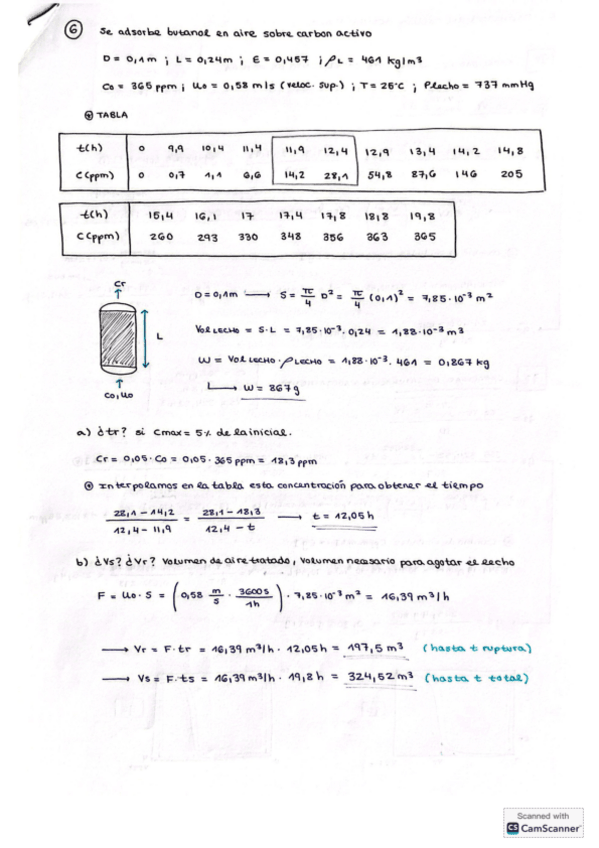 6 Se adsorbe butanol en aire sobre carbon activo
D = 0,1m ; L = 0,24m ; E = 0,457 ; ρL = 461 kg/m3
Co = 365 ppm ; uo = 0,58 m/s (veloc. sup.) ; T = 25°C ; Plecho = 737 mmHg
TABLA
t(h) 0 9,9 10,4 11,4 11,9 12,4 12,9 13,4 14,2 14,8
C(ppm) 0 0,7 1,1 6,6 14,2 28,1 54,8 87,6 146 205
t(h) 15,4 16,1 17 17,4 17,8 18,8 19,8
C(ppm) 260 293 330 348 356 363 365
Cr
L
Co, uo
D = 0,1m → S = π/4 D² = π/4 (0,1)² = 7,85·10⁻³ m²
Vol LECHO = S·L = 7,85·10⁻³·0,24 = 1,88·10⁻³ m3
W = Vol LECHO·ρLECHO = 1,88·10⁻³·461 = 0,867 kg
↳ W = 867g
a) ¿tr? si Cmax = 5% de la inicial.
Cr = 0,05·Co = 0,05·365 ppm = 18,3 ppm
Interpolamos en la tabla esta concentración para obtener el tiempo
28,1 - 14,2 / 12,4 - 11,9 = 28,1 - 18,3 / 12,4 - t → t = 12,05 h
b) ¿Vs? ¿Vr? Volumen de aire tratado, volumen necesario para agotar el lecho
F = uo·S = (0,58 m/s · 3600s/1h) · 7,85·10⁻³ m² = 16,39 m³/h
→ Vr = F·tr = 16,39 m³/h · 12,05h = 197,5 m3 (hasta t ruptura)
→ Vs = F·ts = 16,39 m³/h · 19,8h = 324,52 m3 (hasta t total)
Scanned with
CS CamScanner